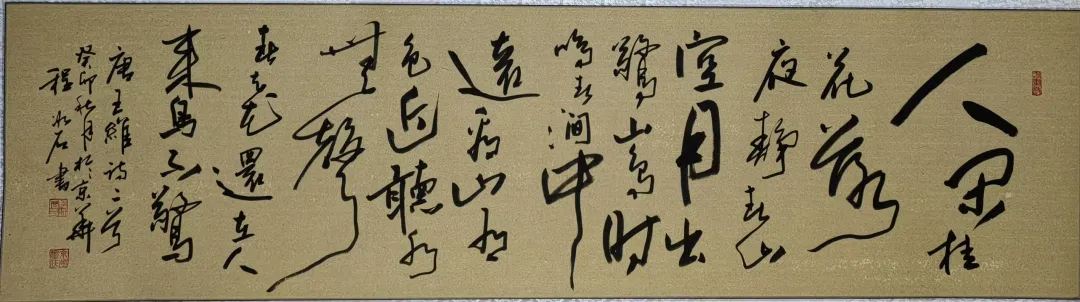 人闲桂
花落
夜静春山
空月出
驚山鸟时
鸣春涧中
遠看山有
色近聽水
無聲
春去花還在人
来鸟不驚
唐王維詩二首
癸卯秋月於京華
程冰石書